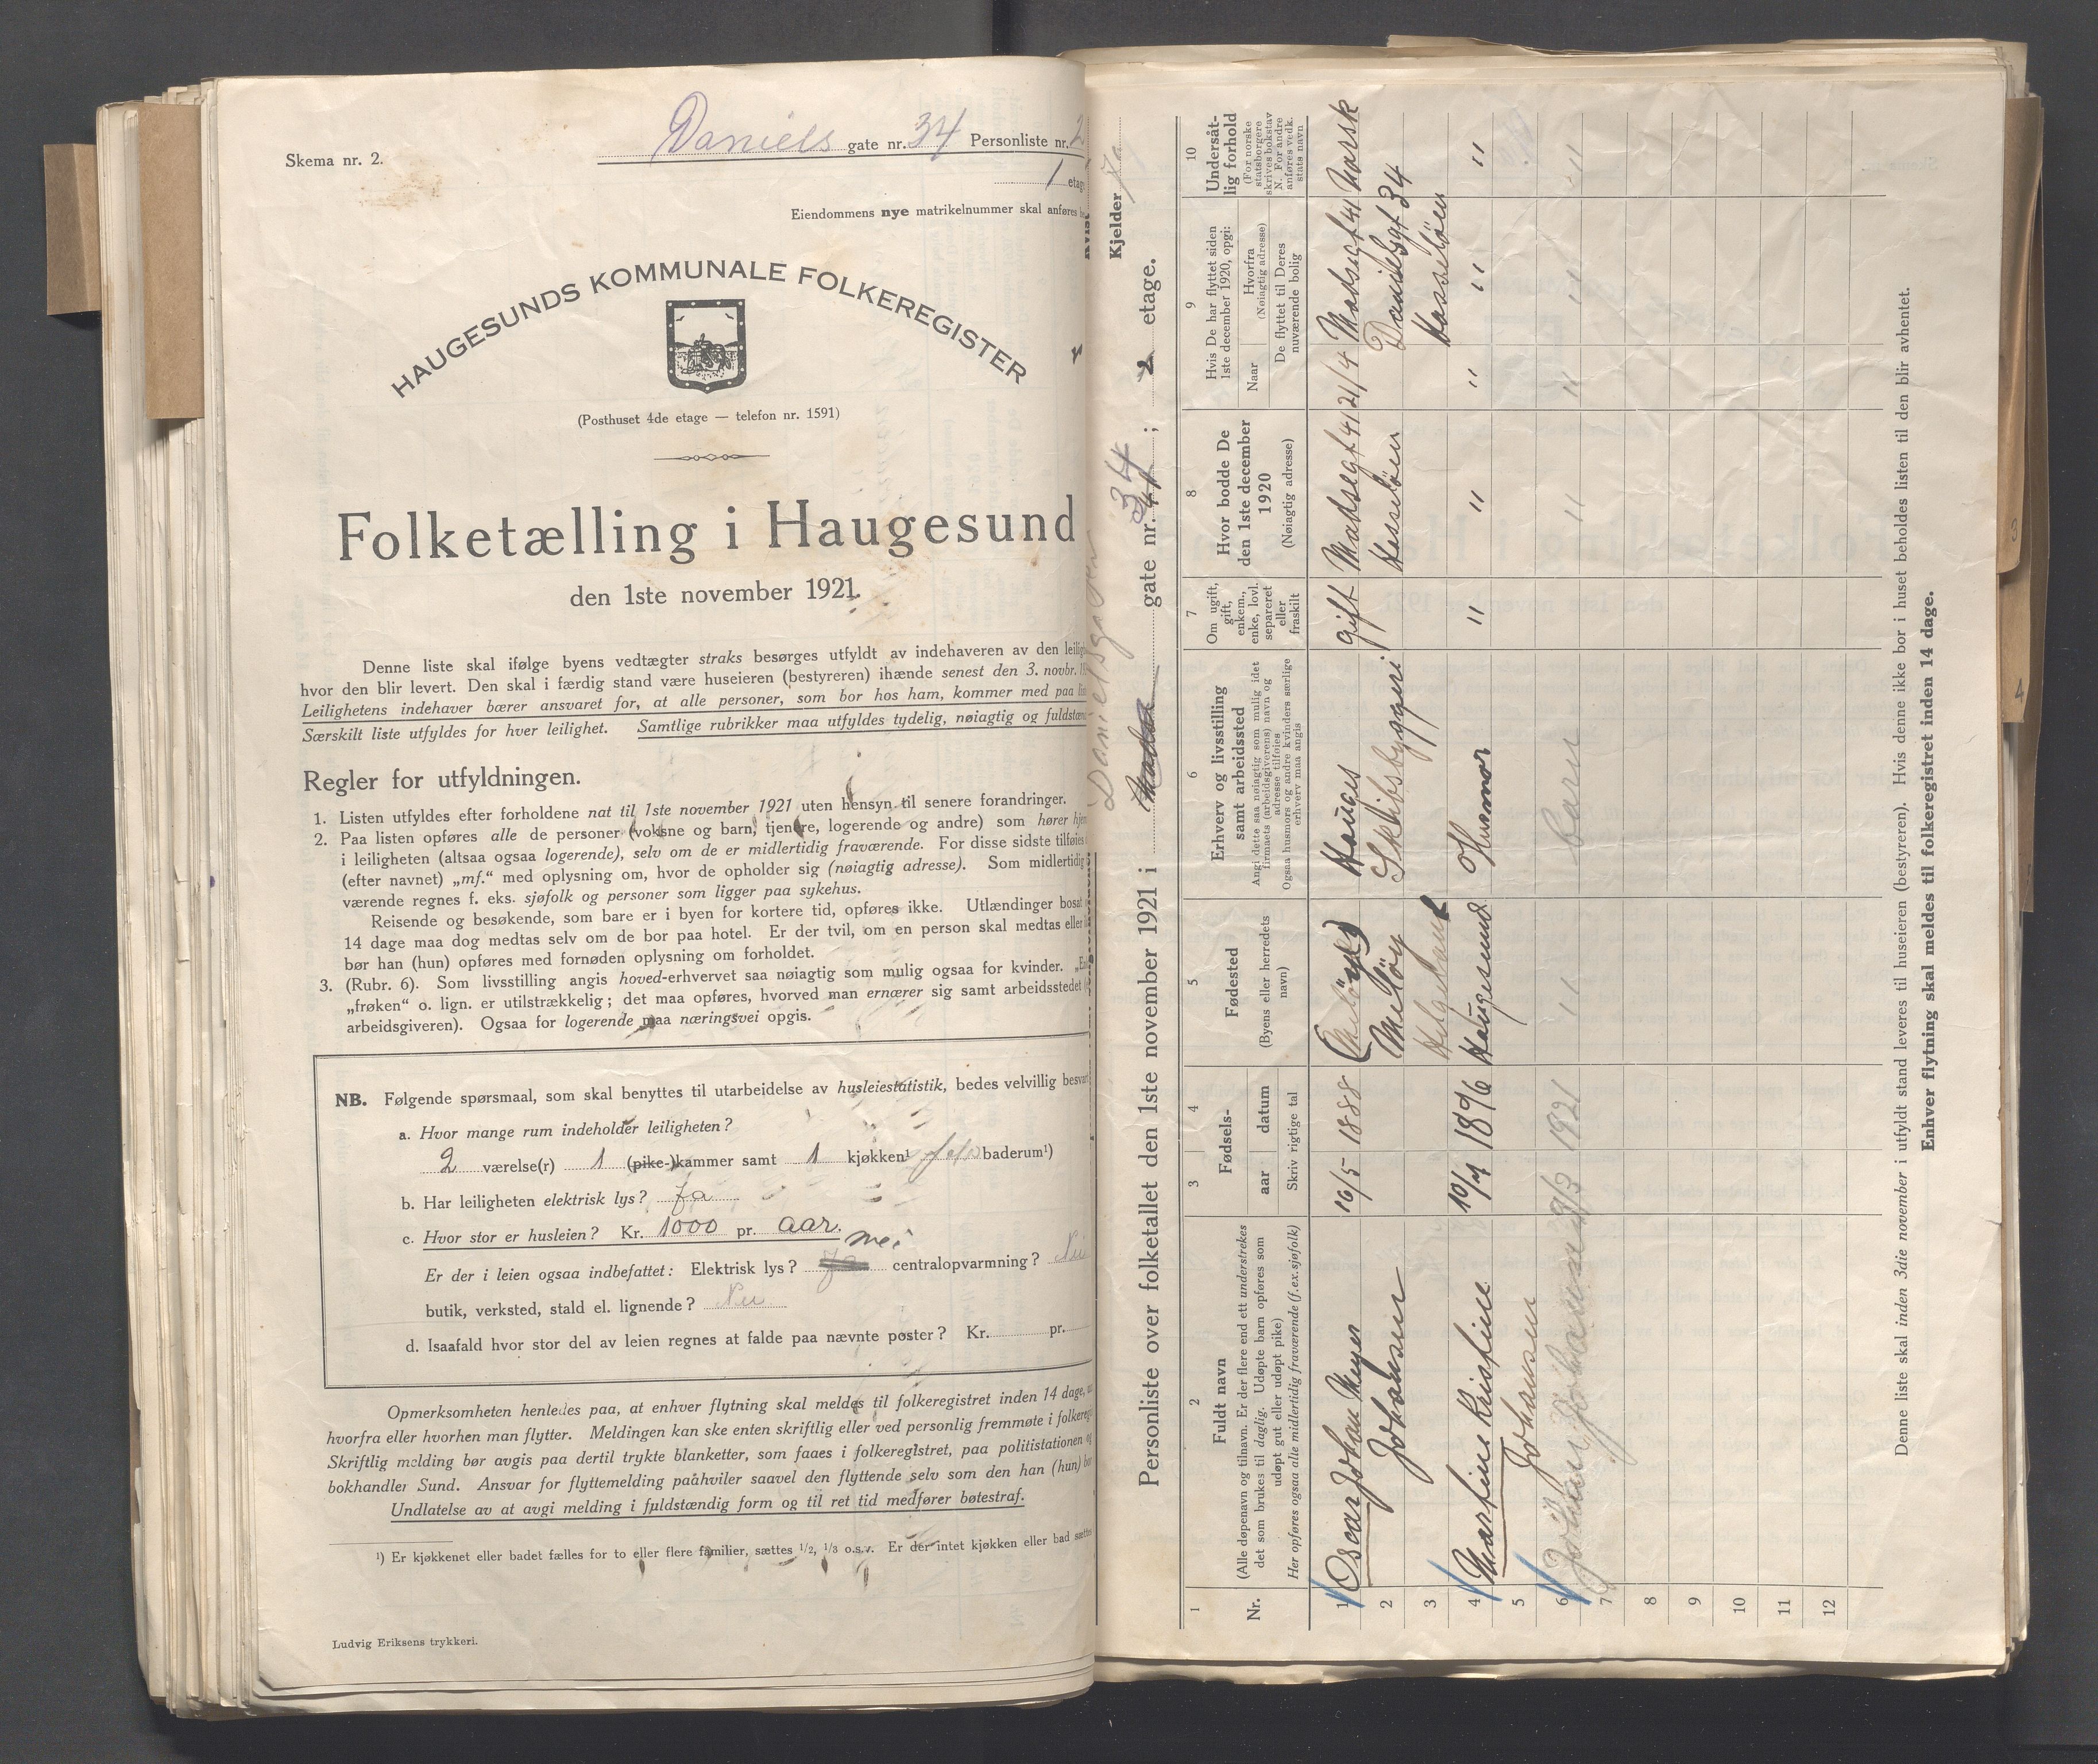 Skema nr. 2.
Daniels gate nr. 34 Personliste nr. 2
1 etage
Eiendommens nye matrikelnummer skal anføres
HAUGESUNDS KOMMUNALE FOLKEREGISTER
(Posthuset 4de etage — telefon nr. 1591)
Folketælling i Haugesund
den 1ste november 1921.
Denne liste skal ifølge byens vedtægter straks besørges utfyldt av indehaveren av den
hvor den blir levert. Den skal i færdig stand være huseieren (bestyreren) ihænde senest den 3. novbr.
Leilighetens indehaver bærer ansvaret for, at alle personer, som bor hos ham, kommer med paa
Særskilt liste utfyldes for hver leilighet. Samtlige rubrikker maa utfyldes tydelig, nøiagtig og
Regler for utfyldningen.
1. Listen utfyldes efter forholdene nat til 1ste november 1921 uten hensyn til senere forandringer.
2. Paa listen opføres alle de personer (voksne og barn, tjenere, logerende og andre) som hører
i leiligheten (altsaa ogsaa logerende), selv om de er midlertidig fraværende. For disse sidste tilføies
(efter navnet) „mf.“ med oplysning om, hvor de opholder sig (nøiagtig adresse). Som midlertidig
værende regnes f. eks. sjøfolk og personer som ligger paa sykehus.
Reisende og besøkende, som bare er i byen for kortere tid, opføres ikke. Utlændinger bosat
14 dage maa dog medtas selv om de bor paa hotel. Er der tvil, om en person skal medtas eller
bør han (hun) opføres med fornøden oplysning om forholdet.
3. (Rubr. 6). Som livsstilling angis hoved-erhvervet saa nøiagtig som mulig ogsaa for kvinder.
„frøken“ o. lign. er utilstrækkelig; det maa opføres, hvorved man ernærer sig samt arbeidsstedet
arbeidsgiveren). Ogsaa for logerende maa næringsvei opgis.
NB. Følgende spørsmaal, som skal benyttes til utarbeidelse av husleiestatistik, bedes velvillig
a. Hvor mange rum indeholder leiligheten?
2 værelse(r) 1 (pike-)kammer samt 1 kjøkken¹ baderum¹)
b. Har leiligheten elektrisk lys? Ja
c. Hvor stor er husleien? Kr. 1000 pr. aar.
nei
Er der i leien ogsaa indbefattet: Elektrisk lys? Ja centralopvarmning? Nei
butik, verksted, stald el. lignende? Nei
d. Isaafald hvor stor del av leien regnes at falde paa nævnte poster? Kr. pr.
Opmerksomheten henledes paa, at enhver flytning skal meldes til folkeregistret inden 14 dage,
hvorfra eller hvorhen man flytter. Meldingen kan ske enten skriftlig eller ved personlig fremmøte i
Skriftlig melding bør avgis paa dertil trykte blanketter, som faaes i folkeregistret, paa politistationen
bokhandler Sund. Ansvar for flyttemelding paahviler saavel den flyttende selv som den han (hun)
Undlatelse av at avgi melding i fuldstændig form og til ret tid medfører bøtestraf.
¹) Er kjøkkenet eller badet fælles for to eller flere familier, sættes 1/2, 1/3 o.s.v. Er der intet kjøkken eller bad
Ludvig Eriksens trykkeri.
Kvist
Kjelder Ja
Danielsgaten 34
Personliste over folketallet den 1ste november 1921 i gate nr. 41; 2 etage.
1
Nr.
2
Fuldt navn
(Alle døpenavn og tilnavn. Er der flere end ett understrekes
det som brukes til daglig. Udøpte barn opføres som
udøpt gut eller udøpt pike)
Her opføres ogsaa alle midlertidig fraværende (f. ex. sjøfolk)
3 4
Fødsels-
aar datum
Skriv rigtige tal
5
Fødested
(Byens eller herredets
navn)
6
Erhverv og livsstilling
samt arbeidssted
Angi dette saa nøiagtig som mulig idet
firmaets (arbeidsgiverens) navn og
adresse tilføies
Ogsaa husmors og andre kvinders særlige
erhverv maa angis
7
Om ugift,
gift,
enkem.,
enke, lovl.
separeret
eller
fraskilt
8
Hvor bodde De
den 1ste december
1920
(Nøiagtig adresse)
9
Hvis De har flyttet siden
1ste december 1920, opgi:
Naar
Hvorfra
(Nøiagtig adresse)
De flyttet til Deres
nuværende bolig
10
Undersåt-
lig forhold
(For norske
statsborgere
skrives bokstav
N. For andre
anføres vedk.
stats navn
1 Oscar Johan Meyer 16/5 1888 (Meløy) Hauges gift Madsegt 41 21/4 Madsegt 41 Norsk
2 Johansen Meløy Skibsbyggeri Hasseløen Danielsgt 34
3 Helgeland Hasseløen
4 Martine Kristine 10/7 1896 Haugesund Husmor " " " " "
5 Johansen
6 Johan Johansen 1921 " barn " " " "
7
8
9
10
11
12
Denne liste skal inden 3die november i utfyldt stand leveres til huseieren (bestyreren). Hvis denne ikke bor i huset beholdes listen til den blir avhentet.
Enhver flytning skal meldes til folkeregistret inden 14 dage.
3
4